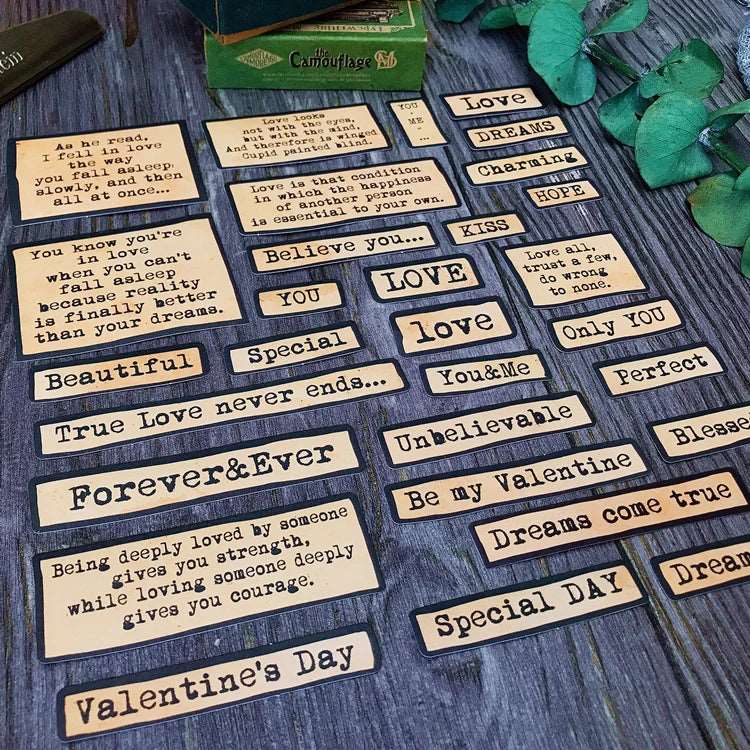 the
Camouflage
As he read,
I fell in love
the way
you fall asleep,
slowly, and then
all at once...
Love looks
not with the eyes,
but with the mind,
And therefore is winged
Cupid painted blind.
YOU
+
ME
=
...
Love
DREAMS
Charming
HOPE
Love is that condition
in which the happiness
of another person
is essential to your own.
KISS
You know you're
in love
when you can't
fall asleep
because reality
is finally better
than your dreams.
Believe you...
Love all,
trust a few,
do wrong
to none.
YOU
LOVE
love
Only YOU
Beautiful
Special
You&Me
Perfect
True Love never ends...
Unbelievable
Blesse
Forever&Ever
Be my Valentine
Dreams come true
Being deeply loved by someone
gives you strength,
while loving someone deeply
gives you courage.
Special DAY
Dream
Valentine's Day